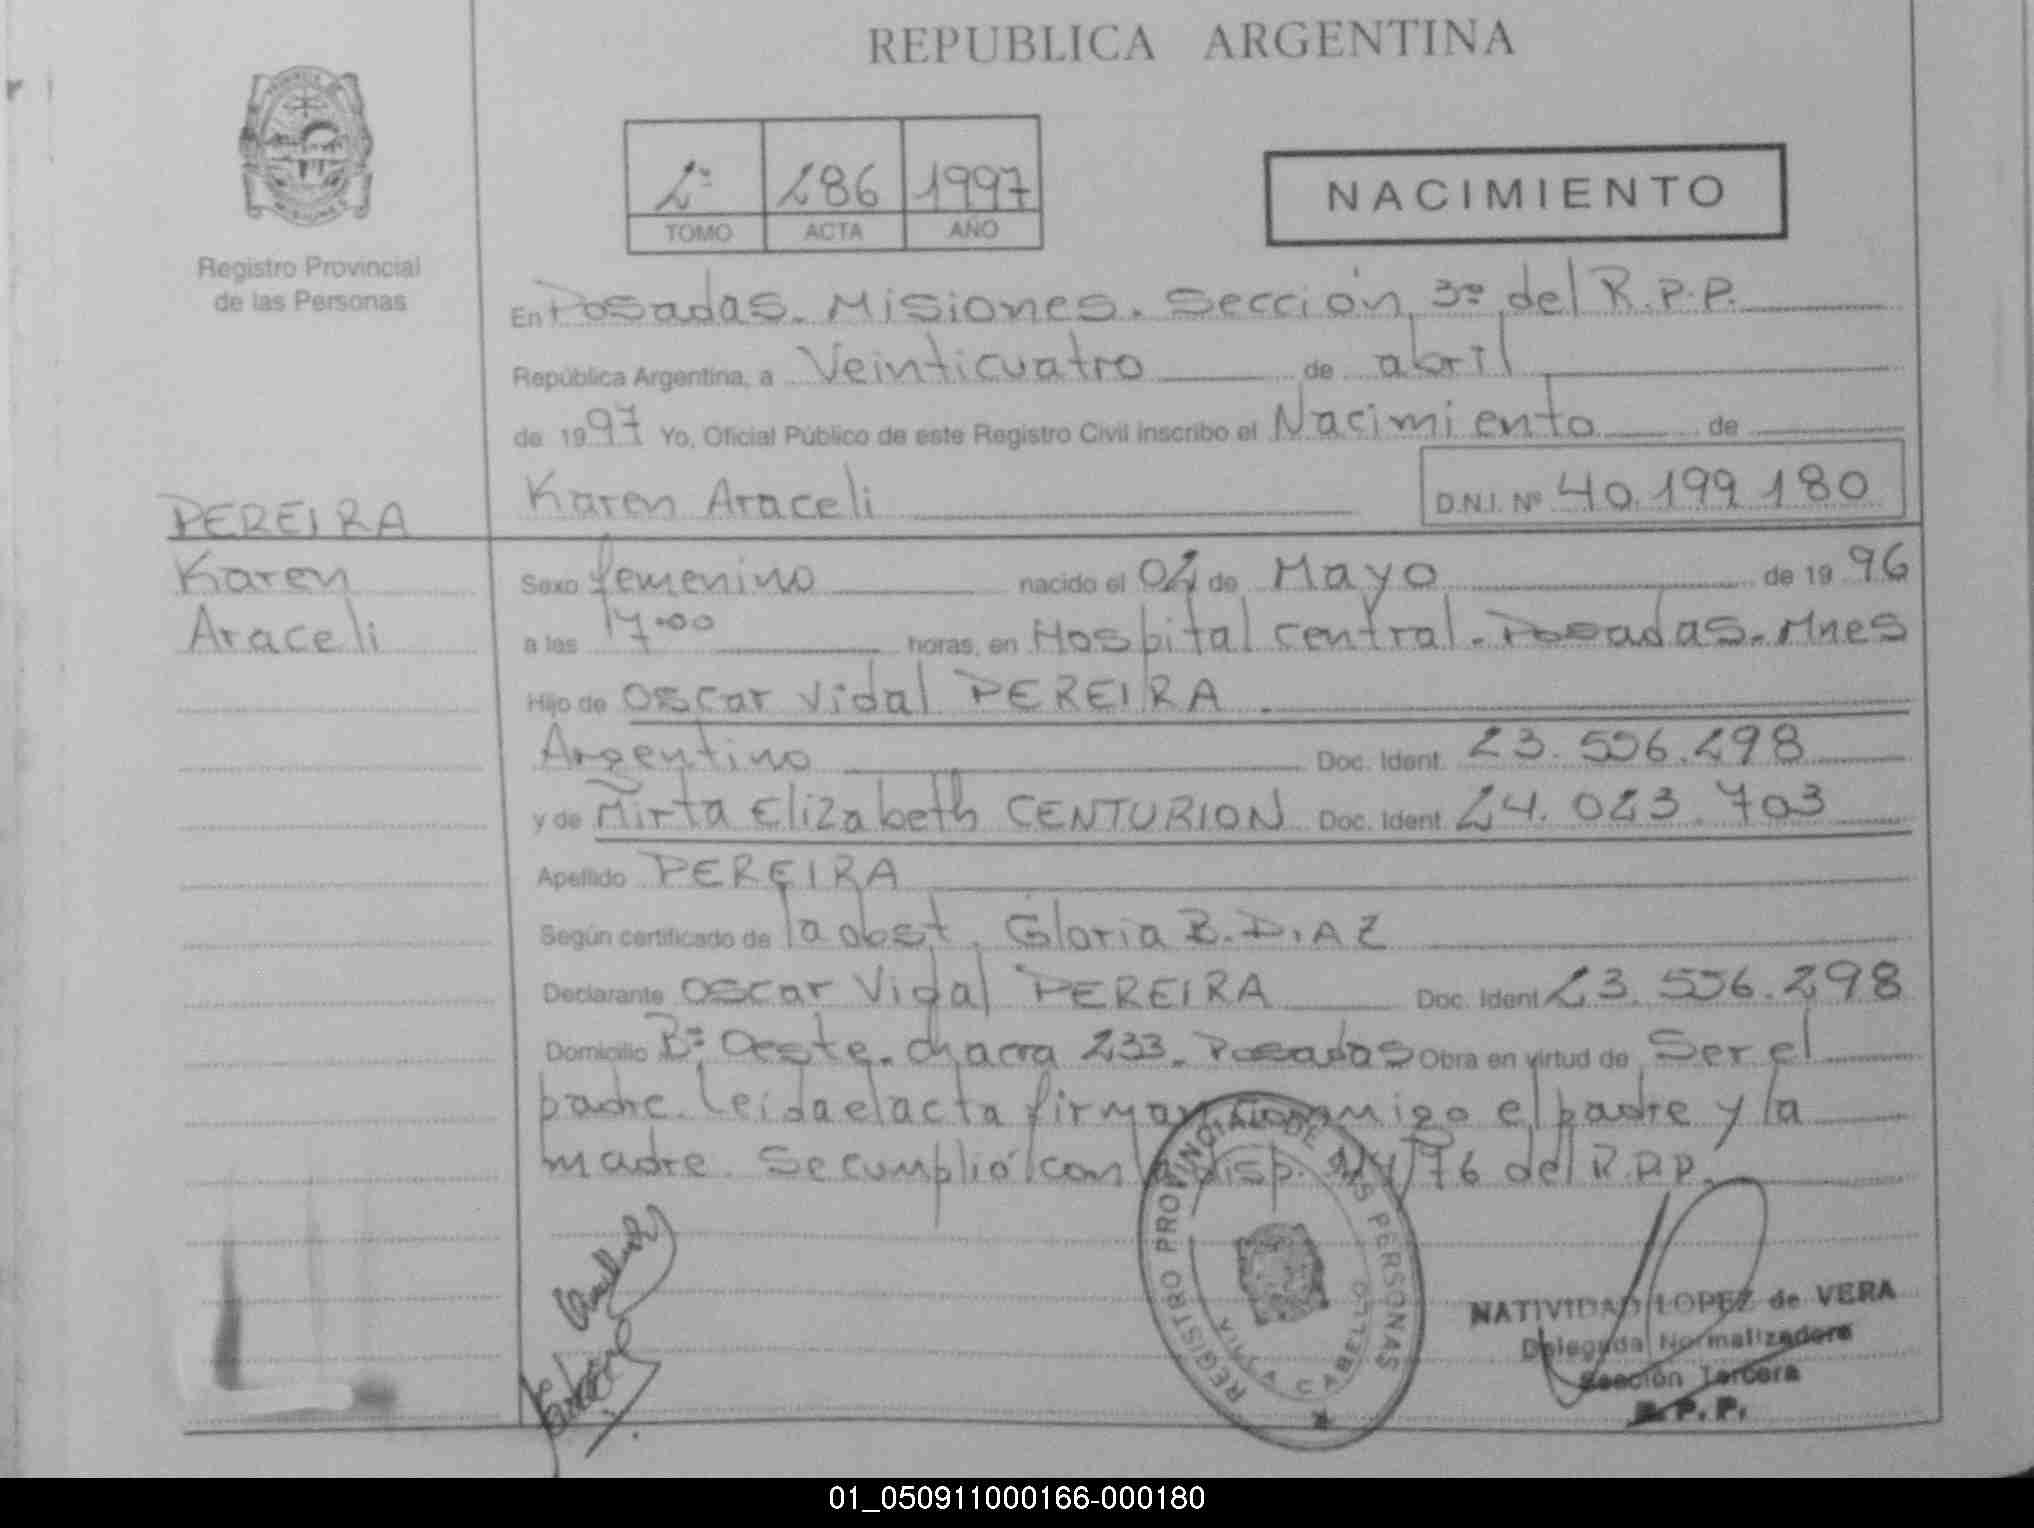 REPUBLICA ARGENTINA
2º 286 1997
TOMO ACTA AÑO
NACIMIENTO
Registro Provincial
de las Personas
En Posadas. Misiones. Sección 3º del R.P.P.
República Argentina, a Veinticuatro de abril
de 1997 Yo, Oficial Público de este Registro Civil inscribo el Nacimiento de
Karen Araceli D.N.I. Nº 40.199.180
PEREIRA
Karen
Araceli
Sexo femenino nacido el 02 de Mayo de 1996
a las 17.00 horas, en Hospital central. Posadas. Mnes
Hijo de Oscar Vidal PEREIRA.
Argentino Doc. Ident. 23.556.298
y de Mirta Elizabeth CENTURION Doc. Ident. 24.023.703
Apellido PEREIRA
Según certificado de la obst. Gloria B. DIAZ
Declarante Oscar Vidal PEREIRA Doc. Ident 23.556.298
Domicilio Bº Oeste. chacra 233. Posadas Obra en virtud de Ser el
padre. Leida el acta firman conmigo el padre y la
madre. Se cumplió con disp. /76 del R.P.P.
REGISTRO PROVINCIAL DE LAS PERSONAS
VILLA CABELLO
NATIVIDAD LOPEZ de VERA
Delegada Normalizadora
Sección Tercera
R.P.P.
01_050911000166-000180